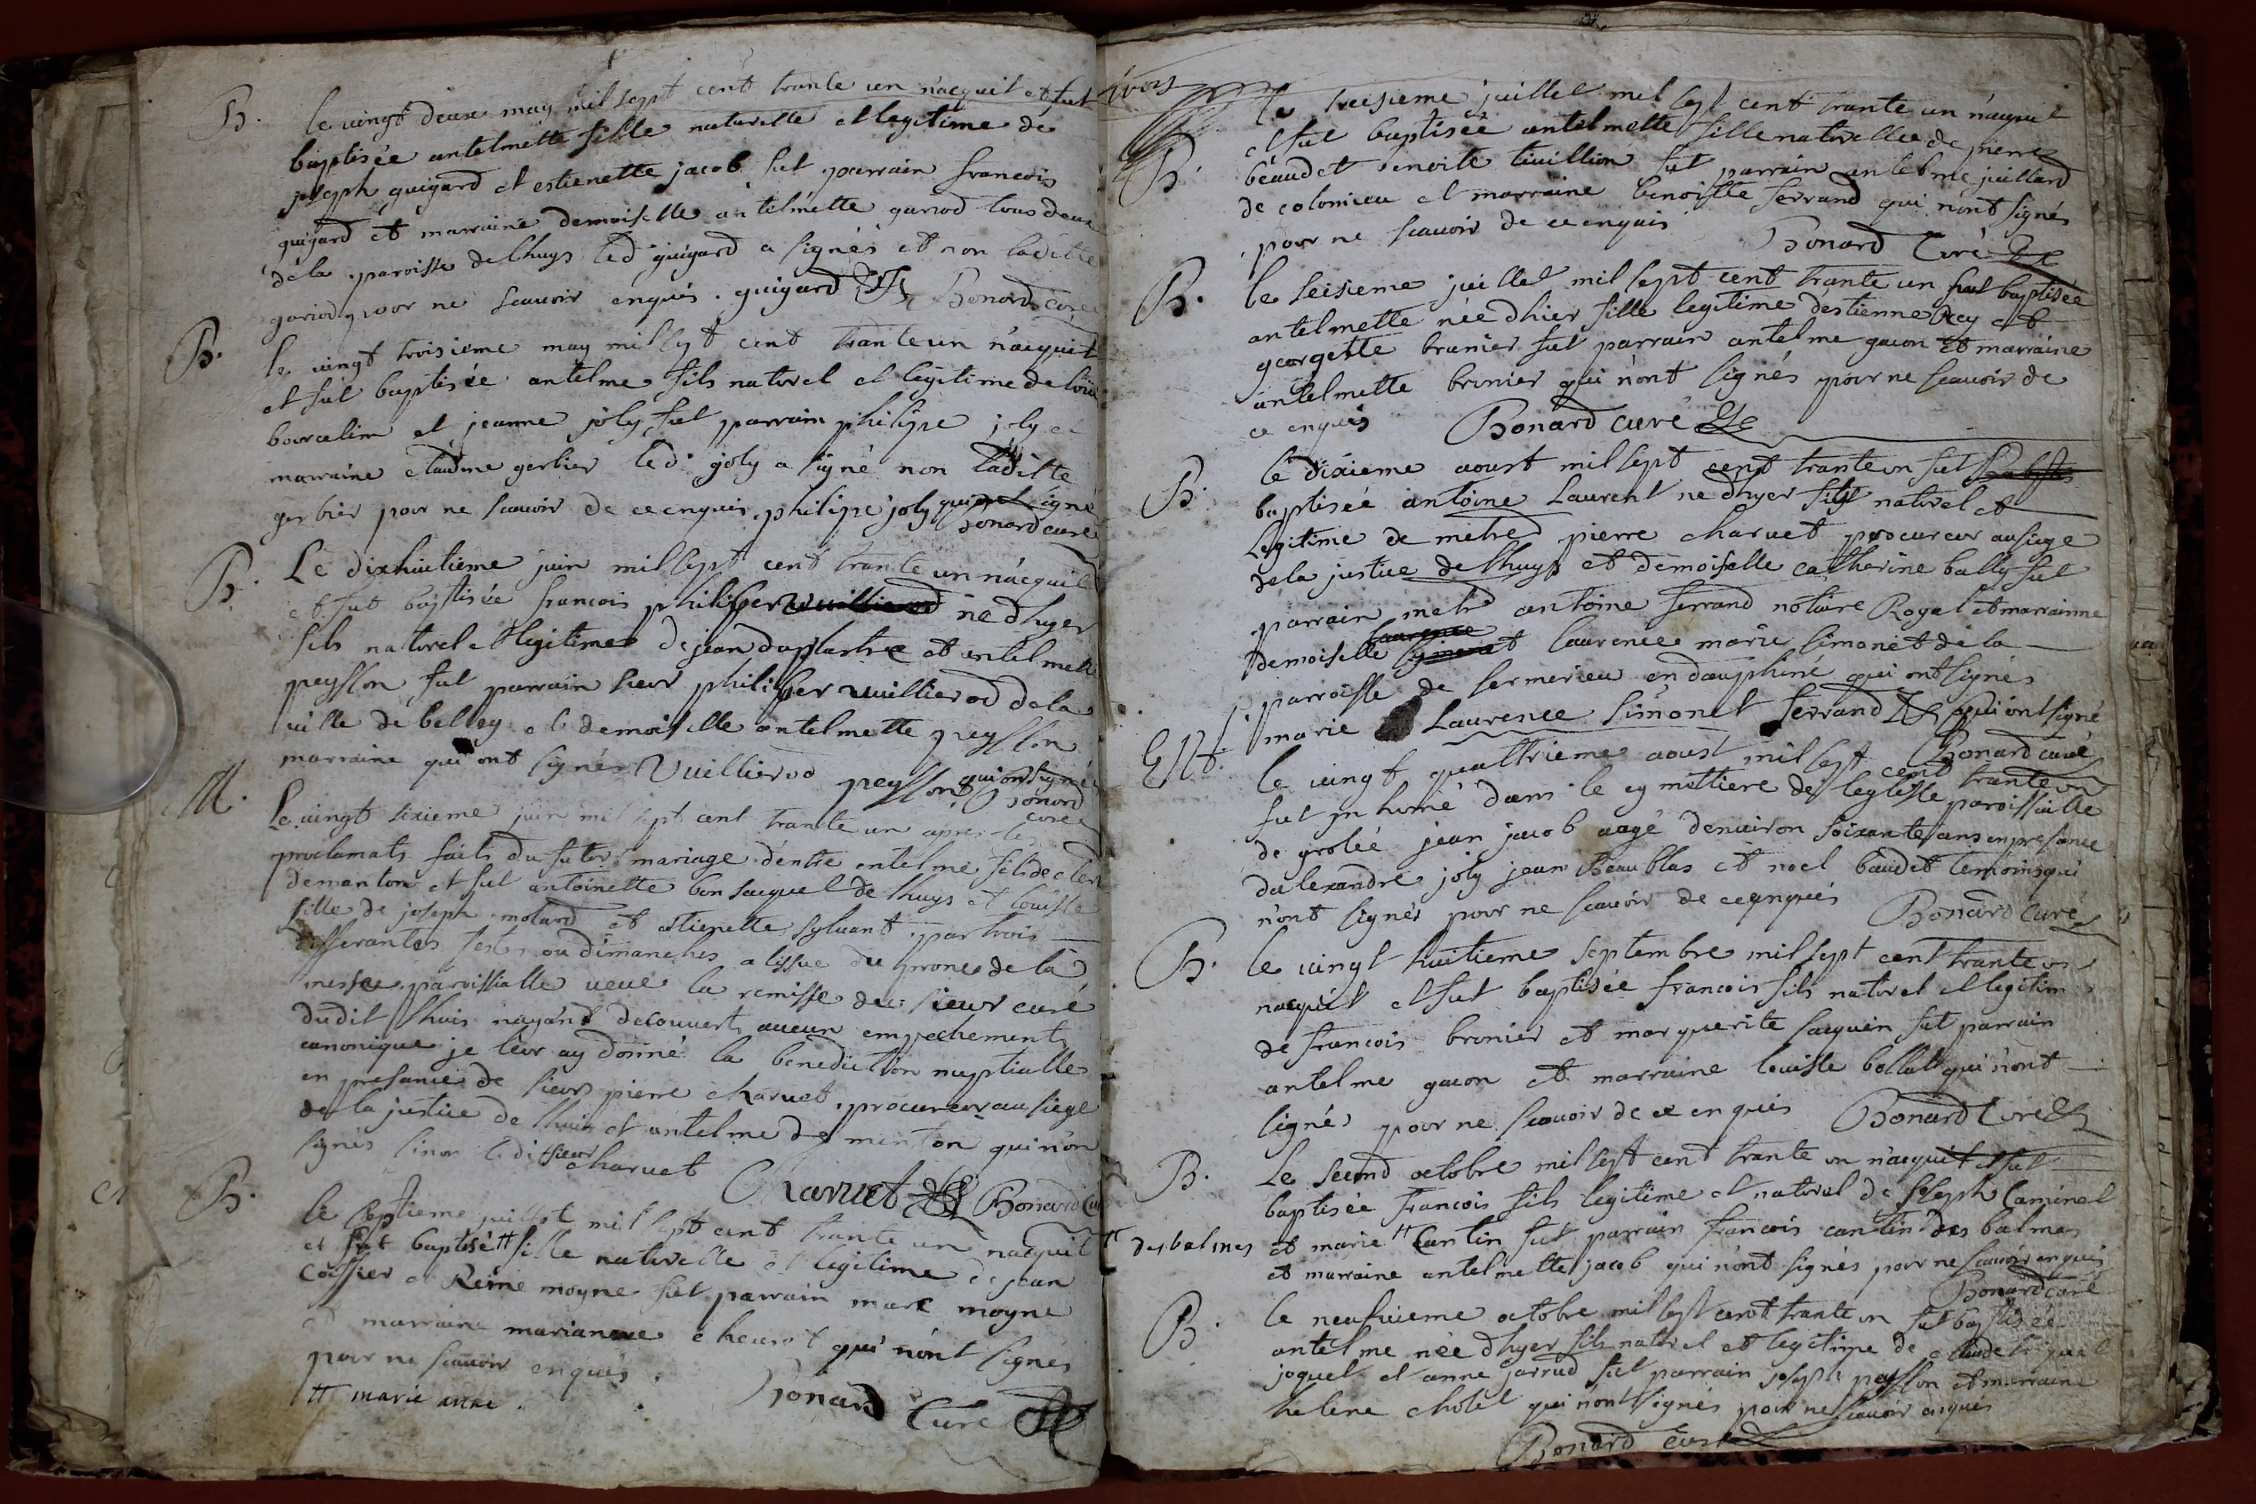 B. le vingt deux may mil sept cent trante un nacquit et fut
baptisée antelmette fille naturelle et legitime de
joseph guigard et estienette jacob fut parrain francois
guigard et marraine demoiselle antelmette gariod tous deux
de la paroisse de lhuys led guigard a signés et non ladette
gariod pour ne scauoir enquis . guigard Bonard curé
B. le vingt troisieme may mil sept cent trante un nacquit
et fut baptisée antelme fils naturel et legitime de
bourcelin et jeanne joly fut parrain philipe joly et
marraine claudine gerbier led. joly a signé non ladette
gerbier pour ne scauoir de ce enquis philipe joly qui a signé
Bonard curé
B. Le dixhuitieme juin mil sept cent trante un nacquit
et fut baptisée francois philiper né dhyer
fils naturel et legitime de jean duplastre et antelmette
peysson fut parrain sieur philiper vuillierod de la
ville de belley et demoiselle antelmette peysson
marraine qui ont signés Vuillierod peysson qui ont signé
Bonard curé
M. Le vingt sixieme juin mil sept cent trante un apres les
proclamats faits du futur mariage d'entre antelme fils de
demanton et fut antoinette bon jacquet de lhuys et
fille de joseph molard et estienette syluant par trois
differantes festes ou dimanches a lissue du prone de la
messe paroissialle veue la remisse du sieur curé
dudit lhuis nayant decouvert aucun empechement
canonique je leur ay donné la benediction nuptialle
en presance de sieur pierre charuet procureur au siege
de la justice de lhuis et antelme demanton qui n'on
signés sinon ledit sieur charuet
Charuet Bonard curé
B. le septieme juillet mil sept cent trante un nacquit
et fut baptisé # fille naturelle et legitime de jean
Coissier et Reine moyne fut parrain marc moyne
et marraine marianne qui n'ont signes
pour ne scauoir enquis .
# marie anne . Bonard Curé
le treisieme juillet mil sept cent trante un nacquit
B. et fut baptisée antelmette fille naturelle de pierre
béaudet benoite tiuillion fut parrain antelme juillard
de colomieu et marraine benoitte ferrand qui n'ont signés
pour ne scauoir de ce enquis Bonard Curé
B. le seisieme juillet mil sept cent trante un fut baptisée
antelmette née dhier fille legitime destienne Rey et
georgette brunier fut parrain antelme gacon et marraine
antelmette brunier qui n'ont signés pour ne scauoir de
ce enquis Bonard curé
B. le dixieme aoust mil sept cent trante un fut
baptisée antoine Laurent ne dhyer fils naturel et
Legitime de metre pierre charuet procureur au siege
de la justice de lhuys et demoiselle catherine bally fut
parrain metre antoine ferrand notaire Royal et marrainne
demoiselle laurence marie simonet de la
parroisse de sermerieu en dauphiné qui ont signés
marie Laurence simonet ferrand qui ont signé
Bonard curé
Ent. le vingt quattrieme aoust mil sept cent trante un
fut inhumé dans le cymettiere de leglisse paroissialle
de groleé jean jacob aagé denuiron soixante ans en presance
dalexandre joly jean beaublas et noel baudet temoins qui
n'ont signés pour ne scauoir de ce enquis Bonard Curé
B. le vingt huitieme septembre mil sept cent trante un
nacquit et fut baptisée francois fils naturel et legitim
de francois brunier et marguerite jacquin fut parrain
antelme gacon et marraine louisse bollat qui n'ont
signés pour ne scauoir de ce enquis Bonard Curé
B. Le second octobre mil sept cent trante un nacquit et fut
baptisée francois fils legitime et naturel de Joseph Caminet
# des balmes et marie # Cantin fut parrain francois cantin des balmes
et marraine antelmette jacob qui n'ont signés pour ne scauoir enquis
Bonard curé
B le neufuieme octobre mil sept cent trante un fut baptisée
antelme née dhyer fils naturel et legitime de
joquet et anne jarrud fut parrain joseph peysson et marraine
helene chôlet qui n'ont signés pour ne scauoir enquis
Bonard curé